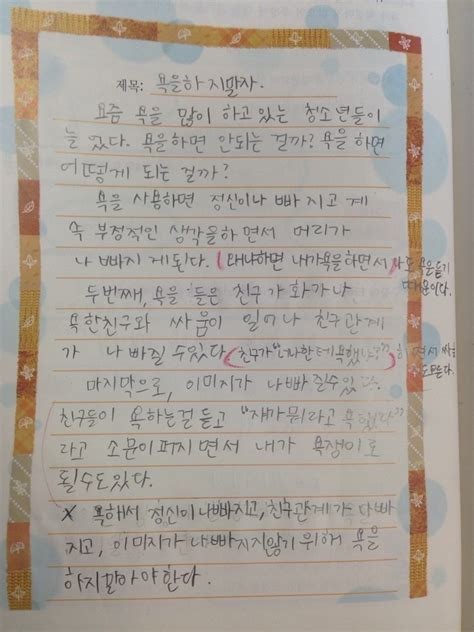 제목: 욕을하 지말자.
요즘 욕을 많이 하고있는 청소년들이
늘었다. 욕을하면 안되는 걸까? 욕을 하면
어떻게 되는 걸까?
욕을 사용하면 정신이나빠지고 계
속 부정적인 생각을하면서 머리가
나빠지게된다. (왜냐하면 내가욕을하면서 나도 욕을듣기
때문이다.
두번째, 욕을 들은 친구가화가나
욕한친구와 싸움이 일어나 친구관계
가 나빠질수있다 (친구가 "너나한테 욕했냐?") 하면서 싸울
도모른다.
마지막으로, 이미지가 나빠질수있다.
친구들이 욕하는걸듣고 "쟤가뭐라고 욕했다"
라고 소문이퍼지면서 내가 욕쟁이로
될수도있다.
X 욕해서 정신이나빠지고, 친구관계가 나빠
지고, 이미지가 나빠지지않기 위해 욕을
하지말아야한다.